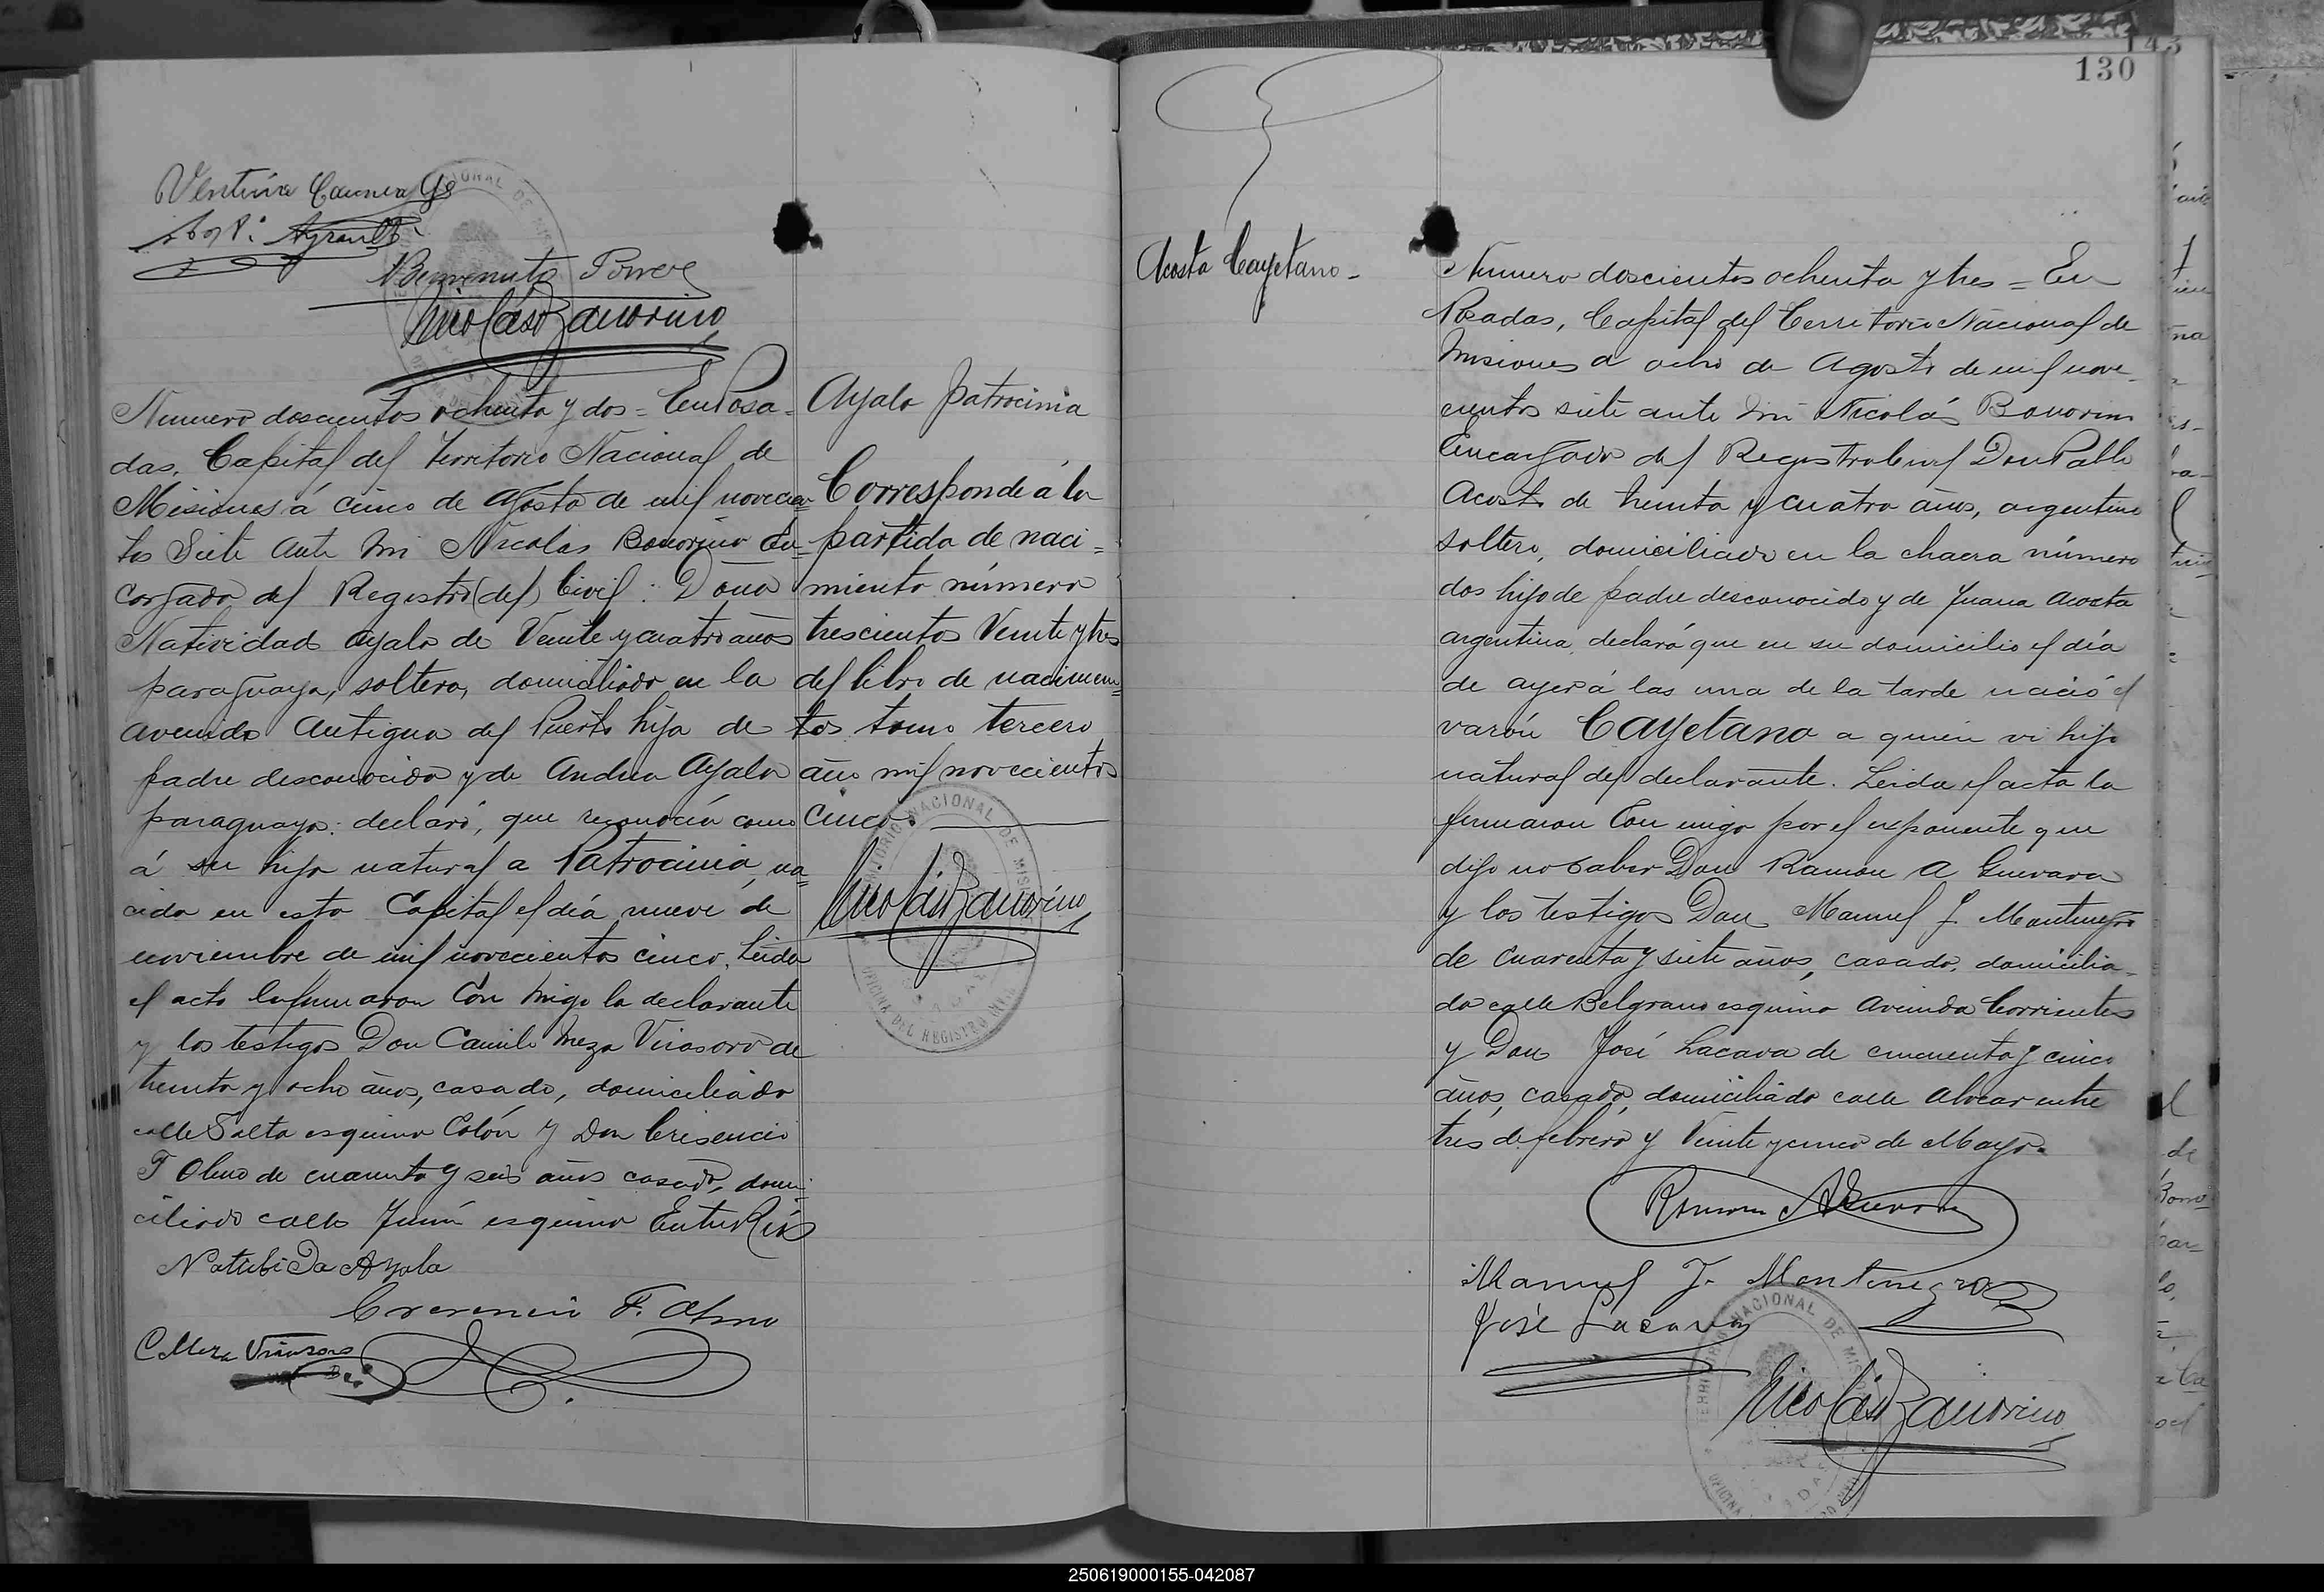 130
Ventura
Benvenuto
Nicolás Bonorino
Numero doscientos ochenta y dos = En Posa-
das, Capital del Territorio Nacional de
Misiones á cinco de Agosto de mil novecien-
tos Siete ante mi Nicolás Bonorino En-
cargado del Registro (del) Civil : Doña
Natividad Ayala de Veinte y cuatro años
paraguaya, soltera, domiciliada en la
avenida Antigua del Puerto hija de
padre desconocido y de Andrea Ayala
paraguaya: declaró, que reconocía como
á su hija natural a Patrocinia, na-
cida en esta Capital el día nueve de
noviembre de mil novecientos cinco. Leida
el acta la firmaron Con migo la declarante
y los testigos Don Camilo Meza Virasoro de
treinta y ocho años, casado, domiciliado
calle Salta esquina Colón y Don Crisencio
F Olmo de cuarenta y seis años casado, domi-
ciliado calle Junin esquina Entre Rios
Natibida Ayala
Crecencio F. Olmo
C Meza Virasoro
Ayala Patrocinia
Corresponde á la
partida de naci=
miento número
trescientos Veinte y tres
del libro de nacimien=
tos tomo tercero
año mil novecientos
cinco.
TERRITORIO NACIONAL DE MISIONES
OFICINA DEL REGISTRO CIVIL
POSADAS
Nicolás Bonorino
Acosta Cayetano -
Numero doscientos ochenta y tres = En
Posadas, Capital del Territorio Nacional de
Misiones a ocho de Agosto de mil nove-
cientos siete ante mi Nicolás Bonorino
Encargado del Registro Civil Don Pablo
Acosta de treinta y cuatro años, argentino
soltero, domiciliado en la chacra número
dos hijo de padre desconocido y de Juana Acosta
argentina, declaró que en su domicilio el día
de ayer á las una de la tarde nació el
varón Cayetano a quien vi hijo
natural del declarante. Leida el acta la
firmaron Con migo por el exponente que
dijo no saber Don Ramon A Guevara
y los testigos Don Manuel J. Montenegro
de cuarenta y siete años, casado, domicilia-
do calle Belgrano esquina Avenida Corrientes
y Don José Lacava de cincuenta y cinco
años, casado, domiciliado calle Alvear entre
tres de febrero y Veinte y cinco de Mayo.
Ramon A Guevara
Manuel J. Montenegro
José Lacava
Nicolás Bonorino
250619000155-042087